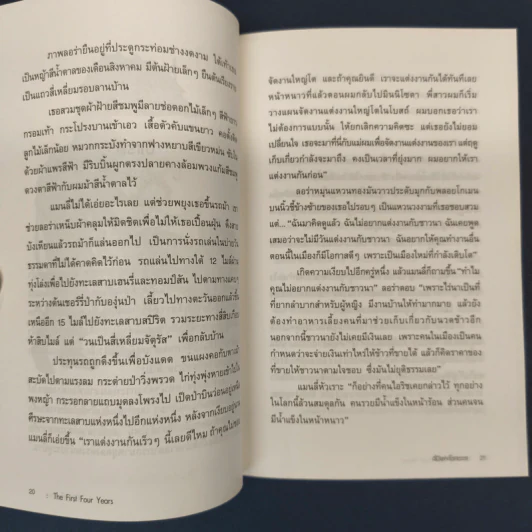 ภาพลอร่ายืนอยู่ที่ประตูกระท่อมช่างงดงาม ใต้เท้าเธอ
เป็นหญ้าสีน้ำตาลของเดือนสิงหาคม มีต้นฝ้ายเล็กๆ ยืนต้นเรียงราย
เป็นแถวสี่เหลี่ยมรอบลานบ้าน
เธอสวมชุดผ้าฝ้ายสีชมพูมีลายช่อดอกไม้เล็กๆ สีฟ้า
กรอมเท้า กระโปรงบานเข้าเอว เสื้อตัวคับแขนยาว คอตั้งติด
ลูกไม้เล็กน้อย หมวกกระบังทำจากฟางหยาบสีเขียวหม่น ซับใน
ด้วยผ้าแพรสีฟ้า มีริบบิ้นผูกตรงปลายคางล้อมพวงแก้มสีชมพู
ดวงตาสีฟ้ากับผมม้าสีน้ำตาลไว้
แมนลี่ไม่ได้เอ่ยอะไรเลย แต่ช่วยพยุงเธอขึ้นรถม้า เขา
ช่วยลอร่าเหน็บผ้าคลุมให้มิดชิดเพื่อไม่ให้เธอเปื้อนฝุ่น ดึงสาย
บังเหียนแล้วรถม้าก็แล่นออกไป เป็นการนั่งรถเล่นในบ่ายวัน
ธรรมดาที่ไม่ได้คาดคิดไว้ก่อน รถแล่นไปทางใต้ 12 ไมล์ผ่าน
ทุ่งโล่งเพื่อไปยังทะเลสาบเฮนรี่และทอมป์สัน ไปตามทางแคบๆ
ระหว่างต้นเชอร์รี่ป่ากับองุ่นป่า เลี้ยวไปทางตะวันออกแล้วขึ้น
เหนืออีก 15 ไมล์ไปยังทะเลสาบสปิริต รวมระยะทางสี่สิบเกือบ
ห้าสิบไมล์ แต่ "วนเป็นสี่เหลี่ยมจัตุรัส" เพื่อกลับบ้าน
ประทุนรถถูกดึงขึ้นเพื่อบังแดด ขนแผงคอกับหางม้า
สะบัดไปตามแรงลม กระต่ายป่าวิ่งพรวด ไก่ทุ่งพุ่งหายเข้าไปใน
พงหญ้า กระรอกลายแถบมุดลงโพรงไป เป็ดป่าบินว่อนอยู่เหนือ
ศีรษะจากทะเลสาบแห่งหนึ่งไปอีกแห่งหนึ่ง หลังจากเงียบอยู่นาน
แมนลี่ก็เอ่ยขึ้น "เราแต่งงานกันเร็วๆ นี้เลยดีไหม ถ้าคุณไม่ชอบ
20 : The First Four Years
จัดงานใหญ่โต และถ้าคุณยินดี เราจะแต่งงานกันได้ทันทีเลย
หน้าหนาวที่แล้วตอนผมกลับไปมินนิโซตา พี่สาวผมก็เริ่ม
วางแผนจัดงานแต่งงานใหญ่โตในโบสถ์ ผมบอกเธอว่าเรา
ไม่ต้องการแบบนั้น ให้ยกเลิกความคิดซะ แต่เธอยังไม่ยอม
เปลี่ยนใจ เธอจะมาที่นี่กับแม่ผมเพื่อจัดงานแต่งงานของเรา แต่ฤดู
เก็บเกี่ยวกำลังจะมาถึง คงเป็นเวลาที่ยุ่งมาก ผมอยากให้เรา
แต่งงานกันก่อน"
ลอร่าหมุนแหวนทองมันวาวประดับมุกกับพลอยโกเมน
บนนิ้วชี้ข้างซ้ายของเธอไปรอบๆ เป็นแหวนวงงามที่เธอชอบสวม
แต่... "ฉันมาคิดดูแล้ว ฉันไม่อยากแต่งงานกับชาวนา ฉันเคยพูด
เสมอว่าจะไม่มีวันแต่งงานกับชาวนา ฉันอยากให้คุณทำงานอื่น
ตอนนี้ในเมืองก็มีโอกาสดีๆ เพราะเป็นเมืองใหม่ที่กำลังเติบโต"
เกิดความเงียบไปอีกครู่หนึ่ง แล้วแมนลี่ก็ถามขึ้น "ทำไม
คุณไม่อยากแต่งงานกับชาวนา" ลอร่าตอบ "เพราะไร่นาเป็นที่
ที่ยากลำบากสำหรับผู้หญิง มีงานบ้านให้ทำมากมาย แล้วยัง
ต้องทำอาหารเลี้ยงคนที่มาช่วยเก็บเกี่ยวกับนวดข้าวอีก
นอกจากนี้ชาวนายังไม่เคยมีเงินเลย เพราะคนในเมืองเป็นคน
กำหนดว่าจะจ่ายเงินเท่าไหร่ให้ข้าวที่ชายได้ แล้วก็คิดราคาของ
ที่ขายให้ชาวนาตามใจชอบ ซึ่งมันไม่ยุติธรรมเลย"
แมนลี่หัวเราะ "ก็อย่างที่คนไอริชเคยกล่าวไว้ ทุกอย่าง
ในโลกนี้ล้วนสมดุลกัน คนรวยมีน้ำแข็งในหน้าร้อน ส่วนคนจน
มีน้ำแข็งในหน้าหนาว"